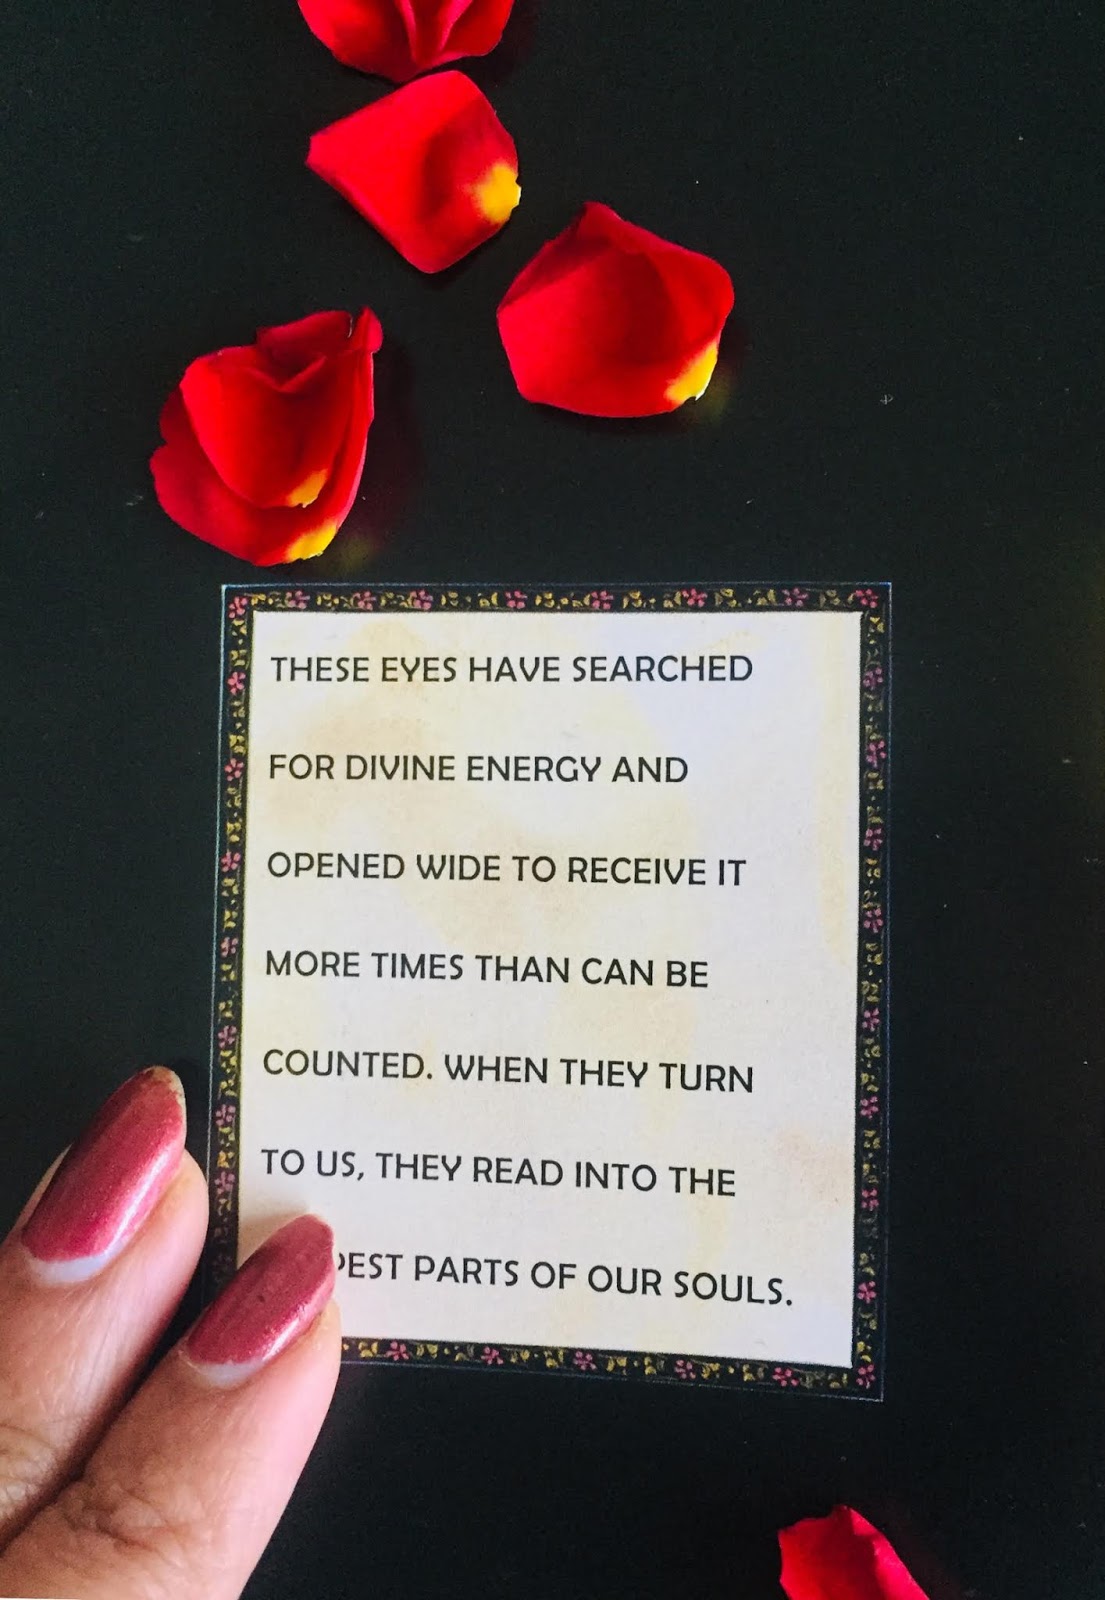 THESE EYES HAVE SEARCHED
FOR DIVINE ENERGY AND
OPENED WIDE TO RECEIVE IT
MORE TIMES THAN CAN BE
COUNTED. WHEN THEY TURN
TO US, THEY READ INTO THE
PARTS OF OUR SOULS.